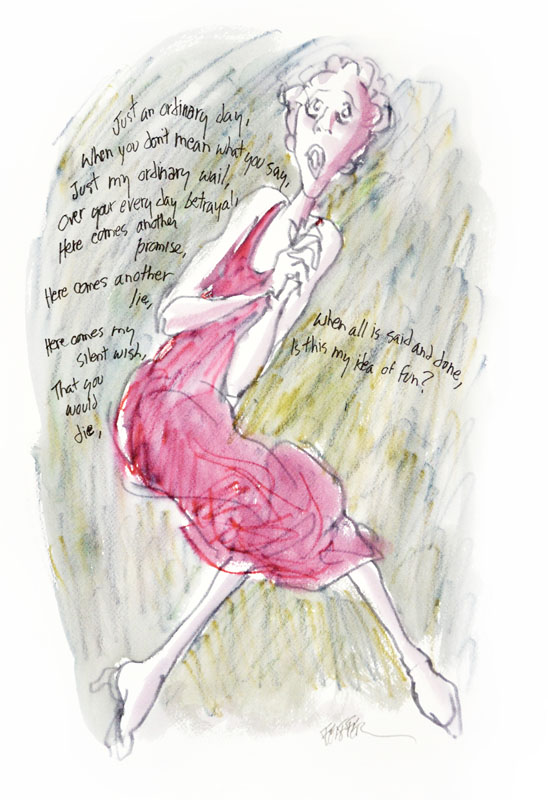 Just an ordinary day,
When you don't mean what you say,
Just my ordinary wail,
Over your every day betrayal,
Here comes another
promise,
Here comes another
lie,
Here comes my
silent wish,
That you
would
die,
When all is said and done,
Is this my idea of fun?